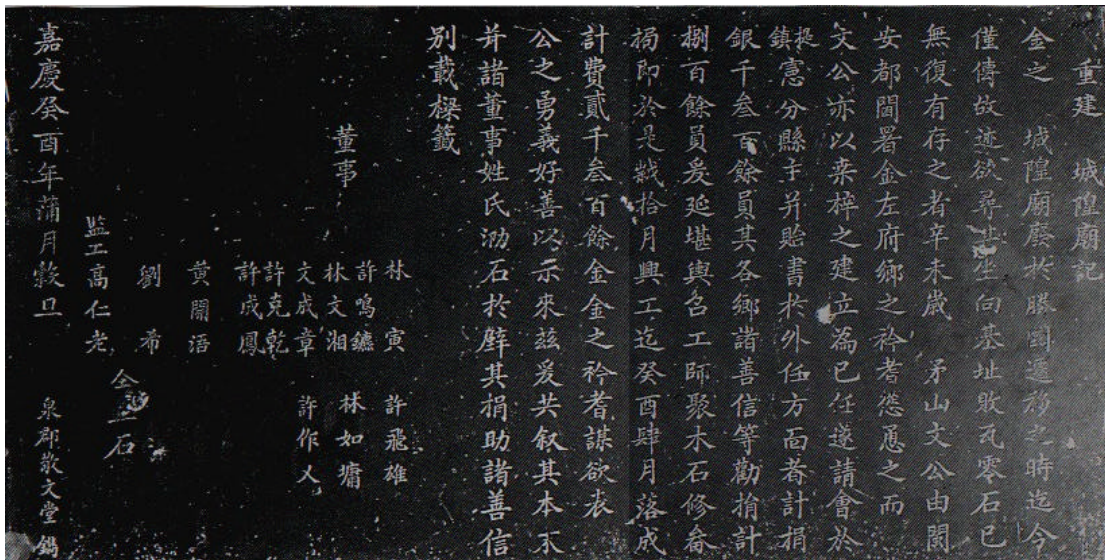 重建 城隍廟記
金之 城隍廟廢於勝國遷移之時迄今
僅傳故迹欲尋其坐向基址敗瓦零石已
無復有存之者辛未歲 茅山文公由閩
安都閫署金左府鄉之衿耆慫恿之而
文公亦以桒梓之建立為已任遂請會於
提鎮憲分縣主并貽書於外任方面者計捐
銀千叁百餘員其各鄉諸善信等勸捐計
捌百餘員爰延堪輿召工師聚木石修畚
挶即於是歲拾月興工迄癸酉肆月落成
計費貳千叁百餘金金之衿耆謀欲表
公之勇義好善以示來茲爰共叙其本末
并諸董事姓氏泐石於壁其捐助諸善信
別載樑籤
董事
林寅 許飛雄
許鳴鑣
林文湘 林如墉
文成章 許作乂
許克乾
許成鳳
黃開浯
劉希
監工高仁老
仝立石
嘉慶癸酉年蒲月穀旦
泉郡敬文堂鐫